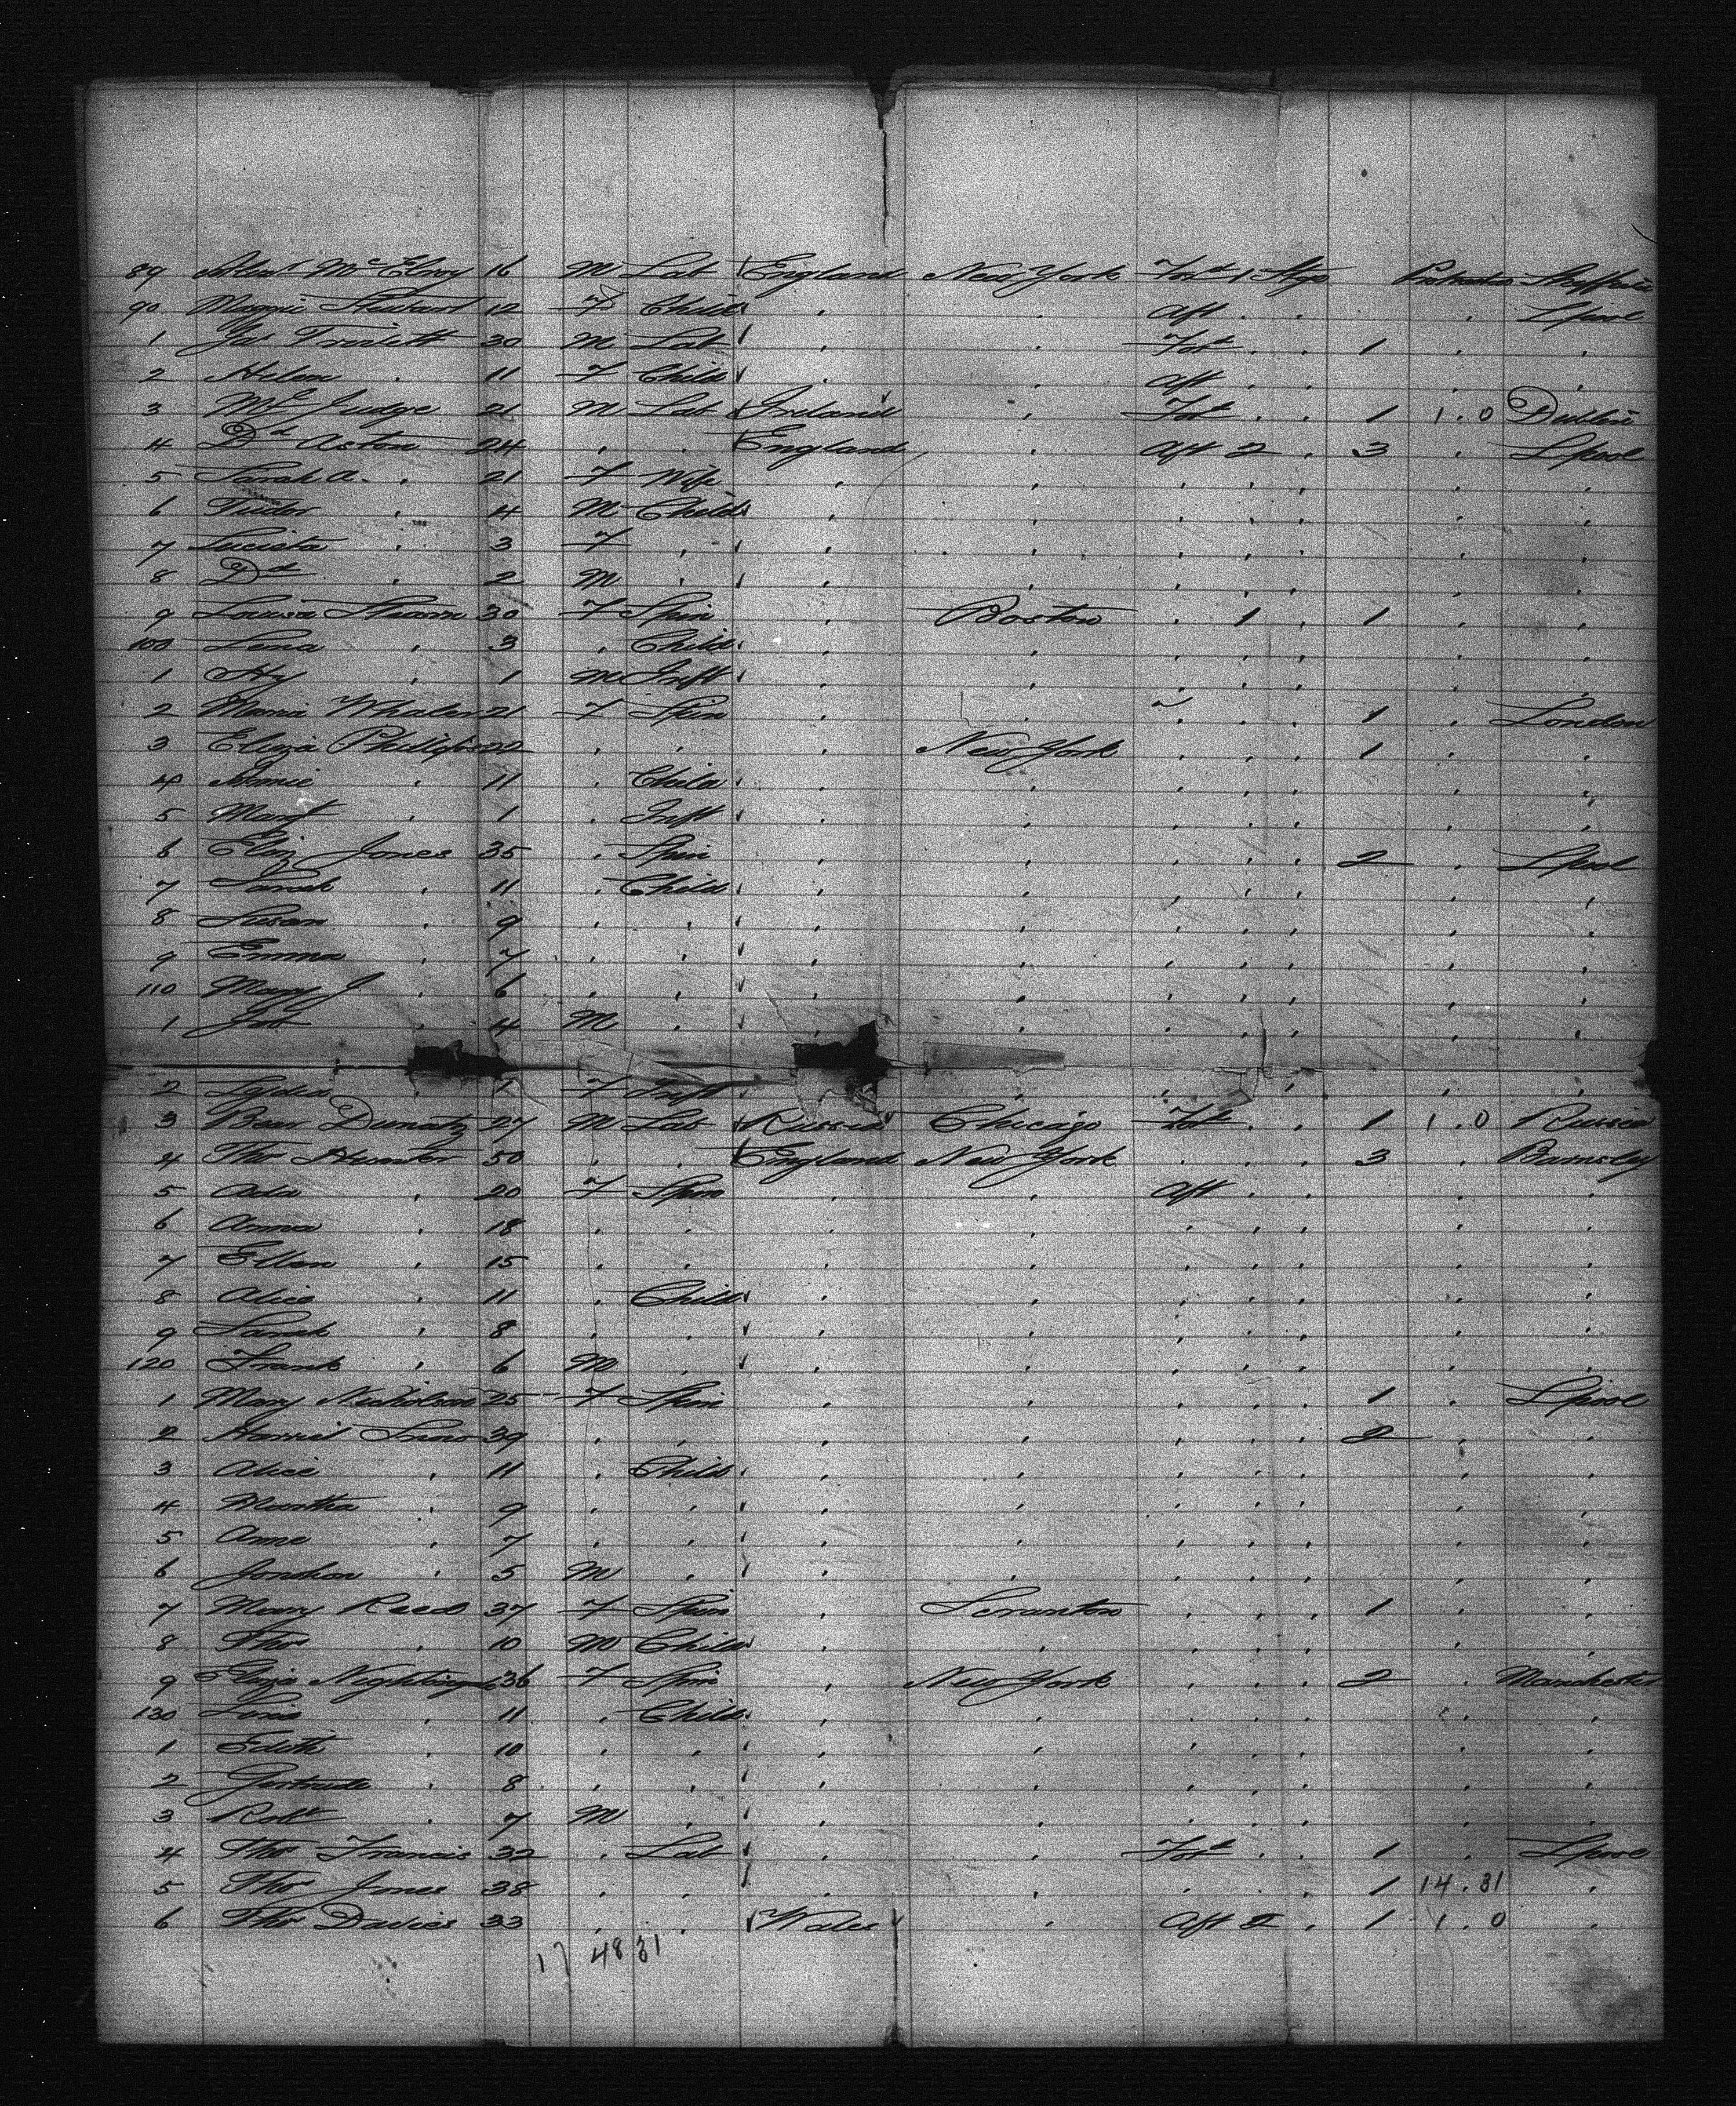 89 McElroy 16 M Lab England New York For'd 1 Stge
90 Maggie Stewart 12 F Child , , Aft . . . Lpool
1 Jas 30 M Lab , , For'd . . 1 . ,
2 Helen , 11 F Child . , Aft . . . ,
3 Judge 21 M Lab Ireland , For'd . . 1 1.0 Dublin
4 Dd Aston 24 , . England , Aft 2 . 3 . Lpool
5 Sarah A. , 21 F Wife , , , , , , ,
6 Tudor , 4 M Child , , , , , , ,
7 , 3 F , , , , , , , ,
8 Dd , 2 M , , , , , , , ,
9 Louisa 30 F Spin , Boston . 1 , 1 . ,
100 Lena , 3 , Child , , , , , , ,
1 Hy , 1 M Inft , , , , , , ,
2 Maria Whalen 21 F Spin , , , , , 1 . London
3 Eliza Phillips 22 , , , New York , , , 1 . ,
4 Annie , 11 , Child , , , , , , ,
5 Mary , 1 , Inft , , , , , , ,
6 Eliz Jones 35 , Spin , , , , , 2 . Lpool
7 Sarah , 11 , Child , , , , , , ,
8 Susan , 9 , , , , , , , , ,
9 Emma , 7 , , , , , , , , ,
110 Mary J , 6 , , , , , , , , ,
1 Jas , 4 M , , , , , , , ,
2 Lydia F Inft , , , , , ,
3 27 M Lab Russia Chicago For'd . , 1 1.0 Russia
4 Thos Hunter 50 , , England New York , , , 3 . Barnsley
5 Ada , 20 F Spin , , Aft . , , ,
6 Anna , 18 , , , , , , , , ,
7 Ellen , 15 , , , , , , , , ,
8 Alice , 11 , Child , , , , , , ,
9 Sarah , 8 , , , , , , , , ,
120 Frank , 6 M , , , , , , , ,
1 Mary Nicholson 25 F Spin , , , , , 1 . Lpool
2 Harriet 39 , , , , , , , 2 , ,
3 Alice , 11 , Child , , , , , , ,
4 Martha , 9 , , , , , , , , ,
5 Anne , 7 , , , , , , , , ,
6 , 5 M , , , , , , , ,
7 Mary Reed 37 F Spin , Scranton , , , 1 , ,
8 Thos , 10 M Child , , , , , , ,
9 Eliza Nightingale 36 F Spin , New York , , , 2 . Manchester
130 , 11 , Child , , , , , , ,
1 Edith , 10 , , , , , , , , ,
2 Gertrude , 8 , , , , , , , , ,
3 Robt , 7 M , , , , , , , ,
4 Thos Francis 32 , Lab , , For'd . , 1 . Lpool
5 Thos Jones 38 , , , , , , , 1 14.31 ,
6 Thos Davies 33 , , Wales , Aft 2 , 1 1.0 ,
17 48 31